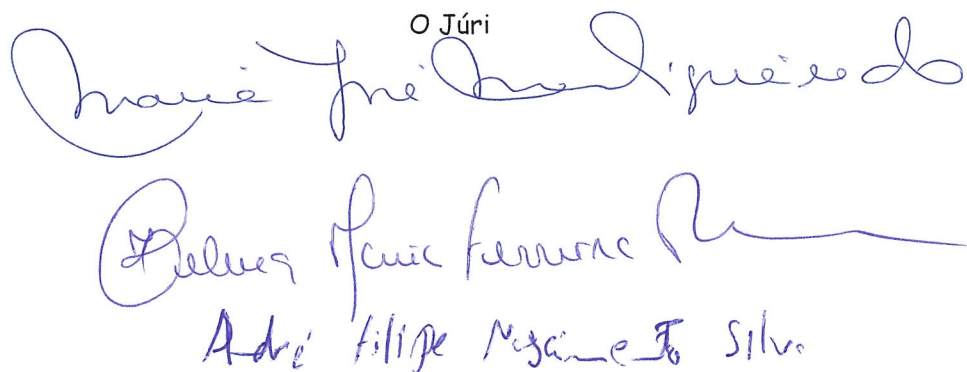 O Júri
Maria José Figueiredo
Maria Ferreira
André Filipe Nascimento Silva